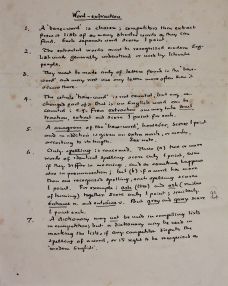 Word-extraction
1. A 'base-word' is chosen; competitors then extract
from it lists of as many shorter words as they can
find. Each separate word scores 1 point.
2. The extracted words must be recognised modern Eng-
lish words generally understood or used by literate
people.
3. They must be made only of letters found in the base-
word and may not use any letter more often than it
occurs there.
4. The whole 'base-word' is not counted, but any un-
changed part of it that is an English word can be
counted. E.g. from extraction we may take tract,
traction, extract and score 1 point for each.
5. A anagram of the 'base-word', however, scores 1 point
and in addition is given an extra mark, or marks,
according to its length. See note.
6. Only spelling is concerned. Thus (a) two or more
words of identical spelling score only 1 point, even
if they differ in meaning, and as may happen
also in pronunciation; but (b) if a word has more
than one recognised spelling, each spelling scores
1 point. For example: ash (tree) and ash (residue
of burning) together score only 1 point; similarly
entrance n. and entrance v. But gray and grey score
1 point each.
7. A dictionary may not be used in compiling lists
in competition; but a dictionary may be used in
marking the lists, if any competitor disputes the
spelling of a word, or its right to be recognised as
'modern English'.